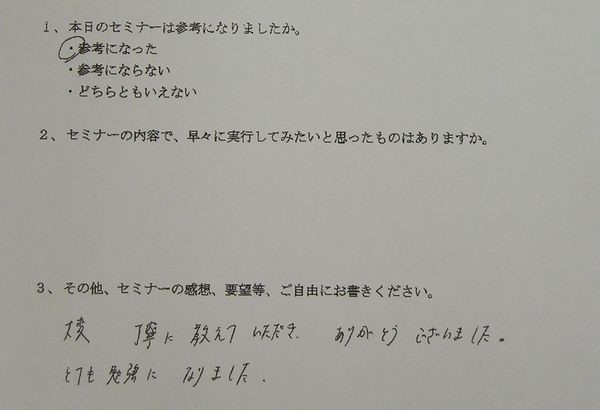 1、本日のセミナーは参考になりましたか。
・参考になった
・参考にならない
・どちらともいえない
2、セミナーの内容で、早々に実行してみたいと思ったものはありますか。
3、その他、セミナーの感想、要望等、ご自由にお書きください。
大変 丁寧に 教えて いただき ありがとう ございました。
とても 勉強に なりました.